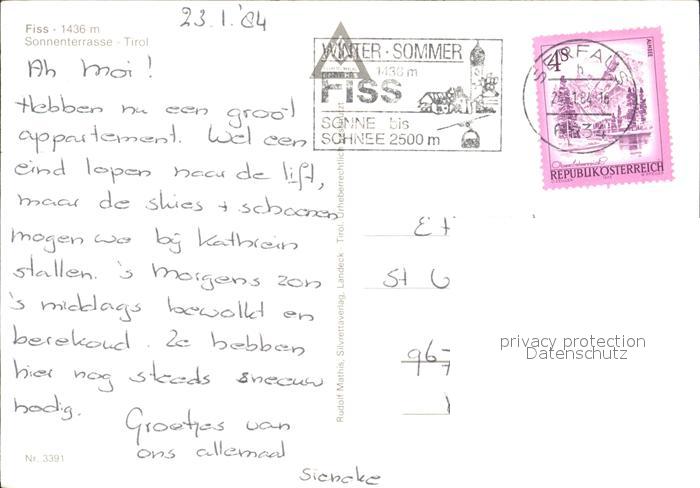 23.1.'84
Fiss · 1436 m
Sonnenterrasse - Tirol
Ah Moi!
Hebben nu een groot
appartement. Wel een
eind lopen naar de lift,
maar de skies + schoenen
mogen we bij Kathrein
stallen. 's Morgens zon
's middags bewolkt en
berekoud. Ze hebben
hier nog steeds sneeuw
nodig.
Groetjes van
ons allemaal
Sieneke
Nr. 3391
Rudolf Mathis, Silvrettaverlag, Landeck - Tirol, Urheberrechtlich
WINTER · SOMMER
1436 m
FISS
SONNE bis
SCHNEE 2500 m
SERFAUS
1.84-16
4S
ALMSEE
Oberösterreich
REPUBLIK ÖSTERREICH
Et
St
96-
privacy protection
Datenschutz